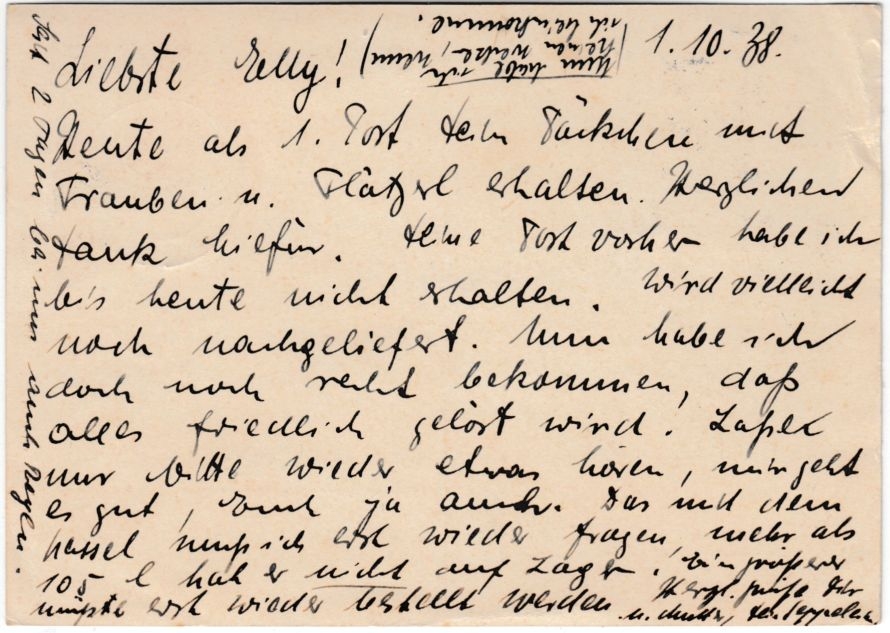 1.10.38.
Liebste Zelly!
(Nun habe ich
keinen mehr, wenn
ich heimkomme.
Heute als 1. Post Dein Päckchen mit
Trauben u. Plätzerl erhalten. Herzlichen
Dank hiefür. Deine Post vorher habe ich
bis heute nicht erhalten. Wird vielleicht
noch nachgeliefert. Nun habe ich
doch noch recht bekommen, daß
alles friedlich gelöst wird! Laßet
nur bitte wieder etwas hören, mir geht
es gut, Euch ja auch. Das mit dem
Kassel muß ich erst wieder fragen, mehr als
105 l hat er nicht auf Lager. Ein größerer
müßte erst wieder bestellt werden. Herzl. Grüße Dir
u. Mutter, Dein
Seit 2 Tagen bei uns auch Regen.